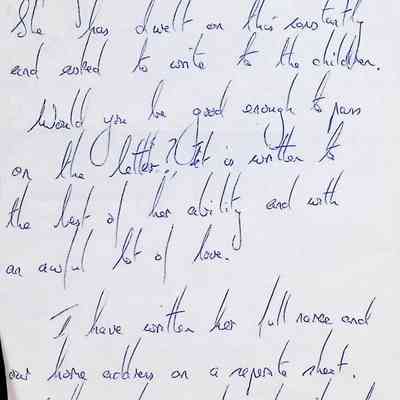 She has dwelt on this constantly
and asked to write to the children.
Would you be good enough to pass
on the letter? It is written to
the best of her ability and with
an awful lot of love.
I have written her full name and
our home address on a seperate sheet.